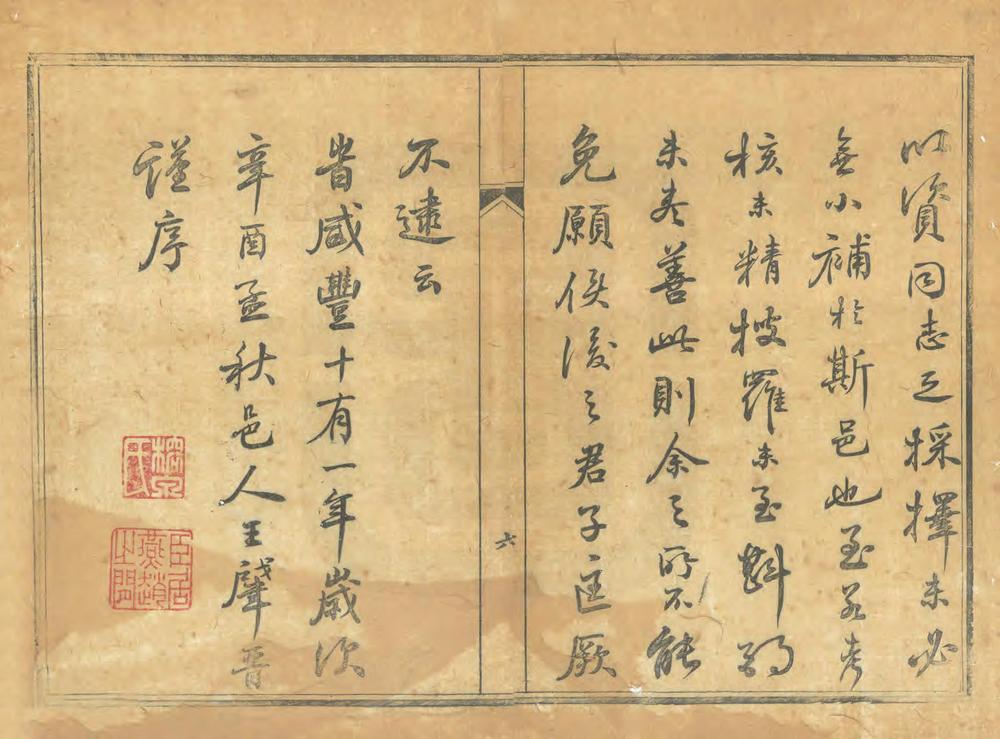 以資同志之採擇未必
無小補於斯邑也至若考
核未精搜羅未至斟酌
未盡善此則余之所不能
免願俟後之君子匡厥
六
不逮云
昔咸豐十有一年歲次
辛酉孟秋邑人王
謹序
臣居燕趙之門